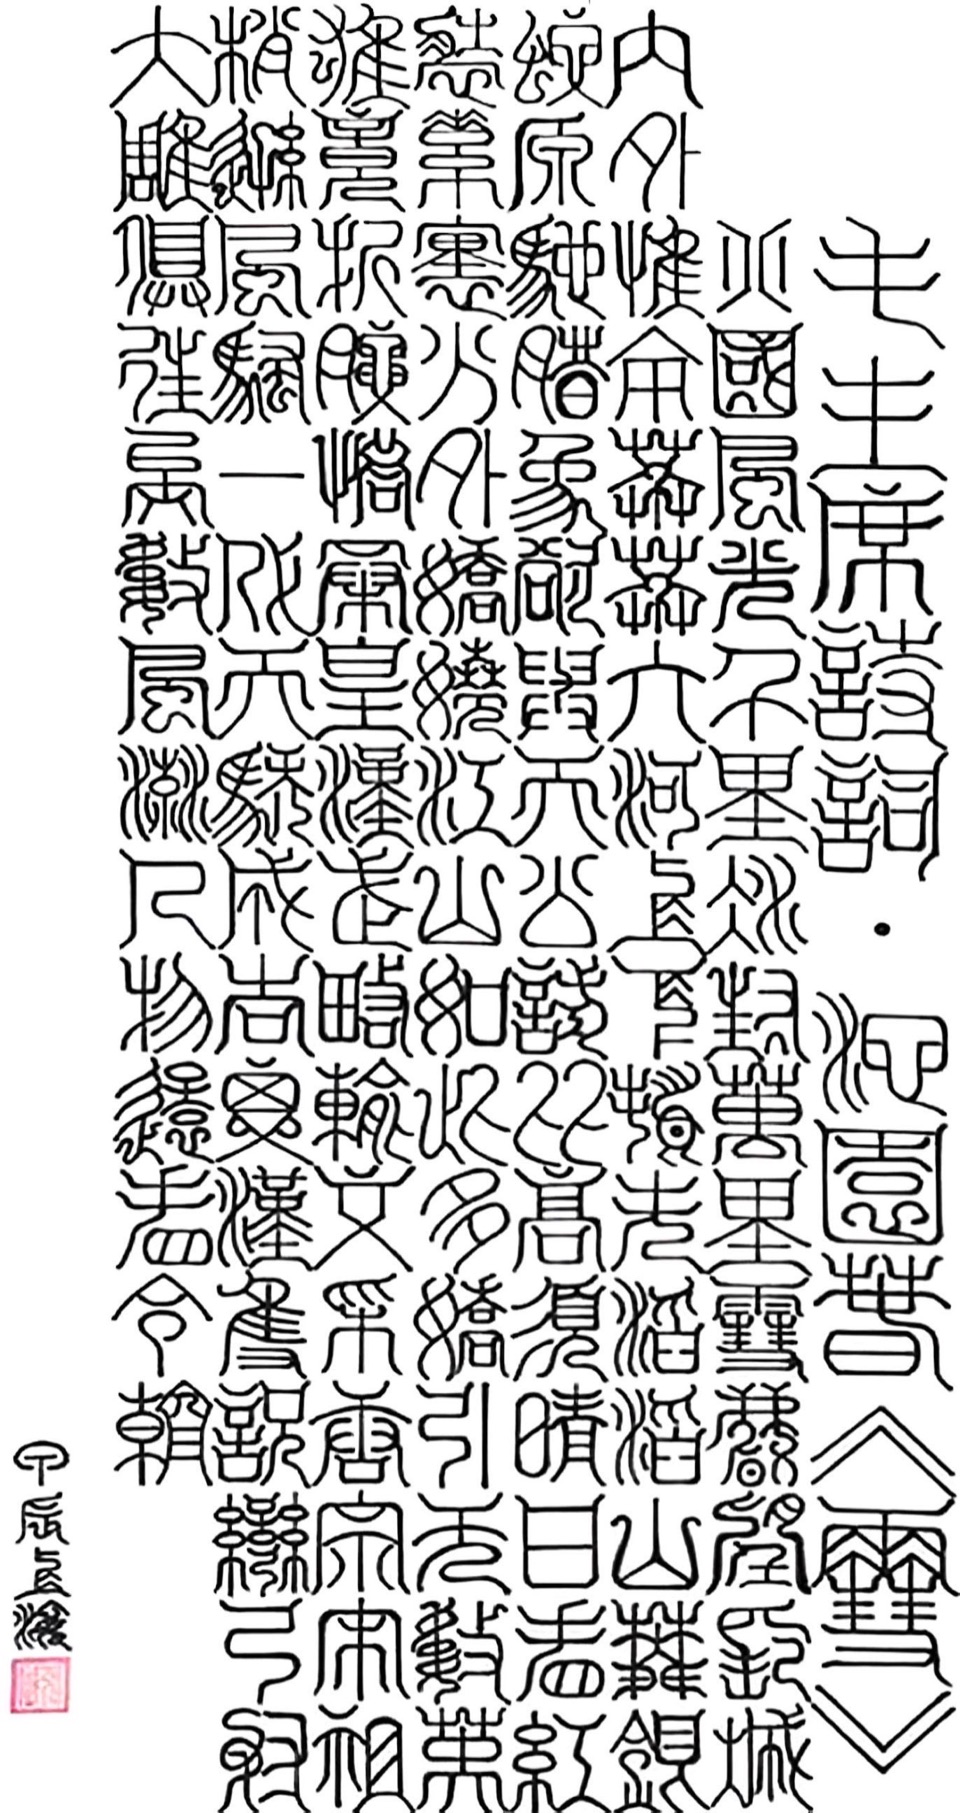 毛主席詩詞・沁園春《雪》
北國風光千里冰封萬里雪飄望長城
內外惟余莽莽大河上下頓失滔滔山舞銀
蛇原馳腊象欲與天公試比高須晴日看紅
裝素裹分外嬌嬈江山如此多嬌引无數英
雄竟折腰惜秦皇漢武略輸文采唐宗宋祖
稍遜風騷一代天驕成吉思漢隻識彎弓射
大雕俱往矣數風流人物還看今朝
甲辰